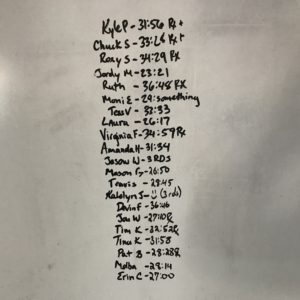 Kyle P - 31:56 Rx+
Chuck S - 33:26 Rx+
Roxy S - 34:29 Rx
Jordy M - 23:21
Ruth - 36:48 Rx
Moni E - 29:something
Tess V - 33:33
Laura - 26:17
Virginia F - 34:59 Rx
Amanda H - 31:34
Jason W - 3 RDS
Mason G - 26:50
Travis - 28:45
Katelyn J - (3 rds)
Devin F - 36:46
Jon W - 27:10 Rx
Tim K - 32:52 Rx
Tina K - 31:58
Pat B - 28:28 Rx
Melba - 28:14
Erin C - 27:00